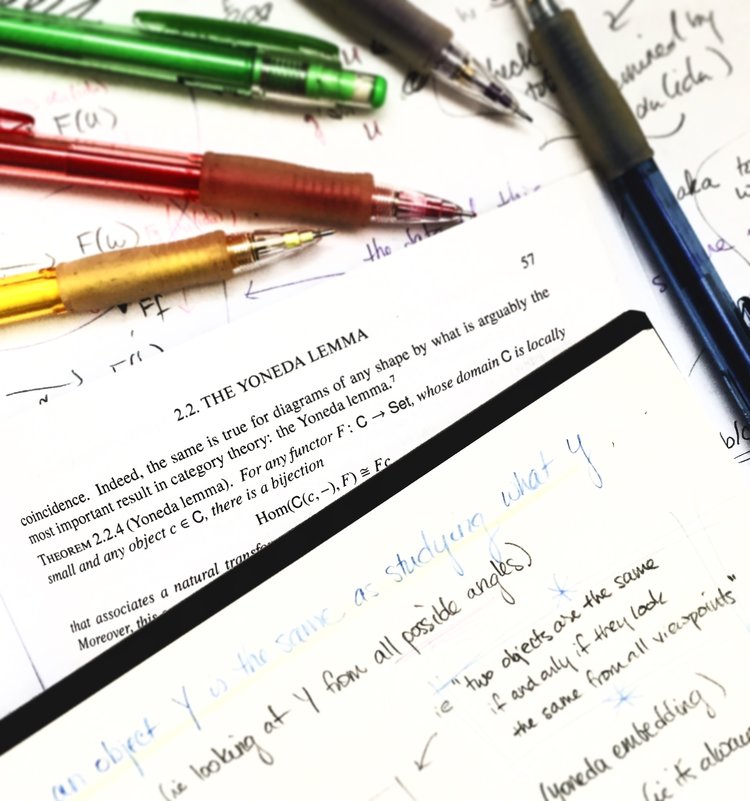 F(U)
u
u
check
(ida)
aka to
F(W)
Ff
the data of this
57
2.2. THE YONEDA LEMMA
coincidence. Indeed, the same is true for diagrams of any shape by what is arguably the
most important result in category theory: the Yoneda lemma.⁷
THEOREM 2.2.4 (Yoneda lemma). For any functor F: C → Set, whose domain C is locally
small and any object c ∈ C, there is a bijection
Hom(C(c, −), F) ≅ Fc
that associates a natural transfo
Moreover, this
an object Y is the same as studying what Y
(ie looking at Y from all possible angles)
ie "two objects are the same
if and only if they look
the same from all viewpoints"
(Yoneda embedding)
(ie it's always